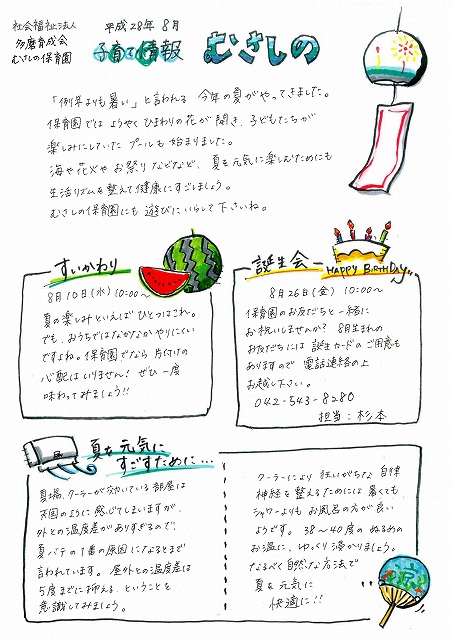 社会福祉法人
多摩育成会
むさしの保育園
平成28年 8月
子育て情報 むさしの
「例年よりも暑い」と言われる 今年の夏がやってきました。
保育園では ようやく ひまわりの花が 開き、子どもたちが
楽しみにしていた プールも 始まりました。
海や花火や お祭り などなど、夏を元気に楽しむためにも
生活リズムを整えて健康にすごしましょう。
むさしの保育園にも 遊びにいらして下さいね。
すいかわり
8月10日(水) 10:00～
夏の楽しみといえば ひとつはこれ。
でも、おうちではなかなか やりにくい
ですよね。保育園でなら 片付けの
心配は いりません! ぜひ 一度
味わってみましょう!!
誕生会
HAPPY BIRTHDAY
8月26日(金) 10:00～
保育園のお友だちと一緒に
お祝いしませんか? 8月生まれの
お友だちには 誕生カードの ご用意も
ありますので 電話連絡の上
お越し下さい。
042-543-8280
担当:杉本
夏を元気に
すごすために…
夏場、クーラーが効いている部屋は
天国のように 感じてしまいますが、
外との温度差がありすぎるので、
夏バテの 1番の原因になるとまで
言われています。屋外との温度差は
5度までに抑える ということを
意識してみましょう。
クーラーにより 狂いがちな 自律
神経を整えるためには 暑くても
シャワーよりも お風呂の方が良い
ようです。38～40度の ぬるめの
お湯に、ゆっくり 浸かりましょう。
なるべく自然な方法で
夏を元気に
快適に!!
涼